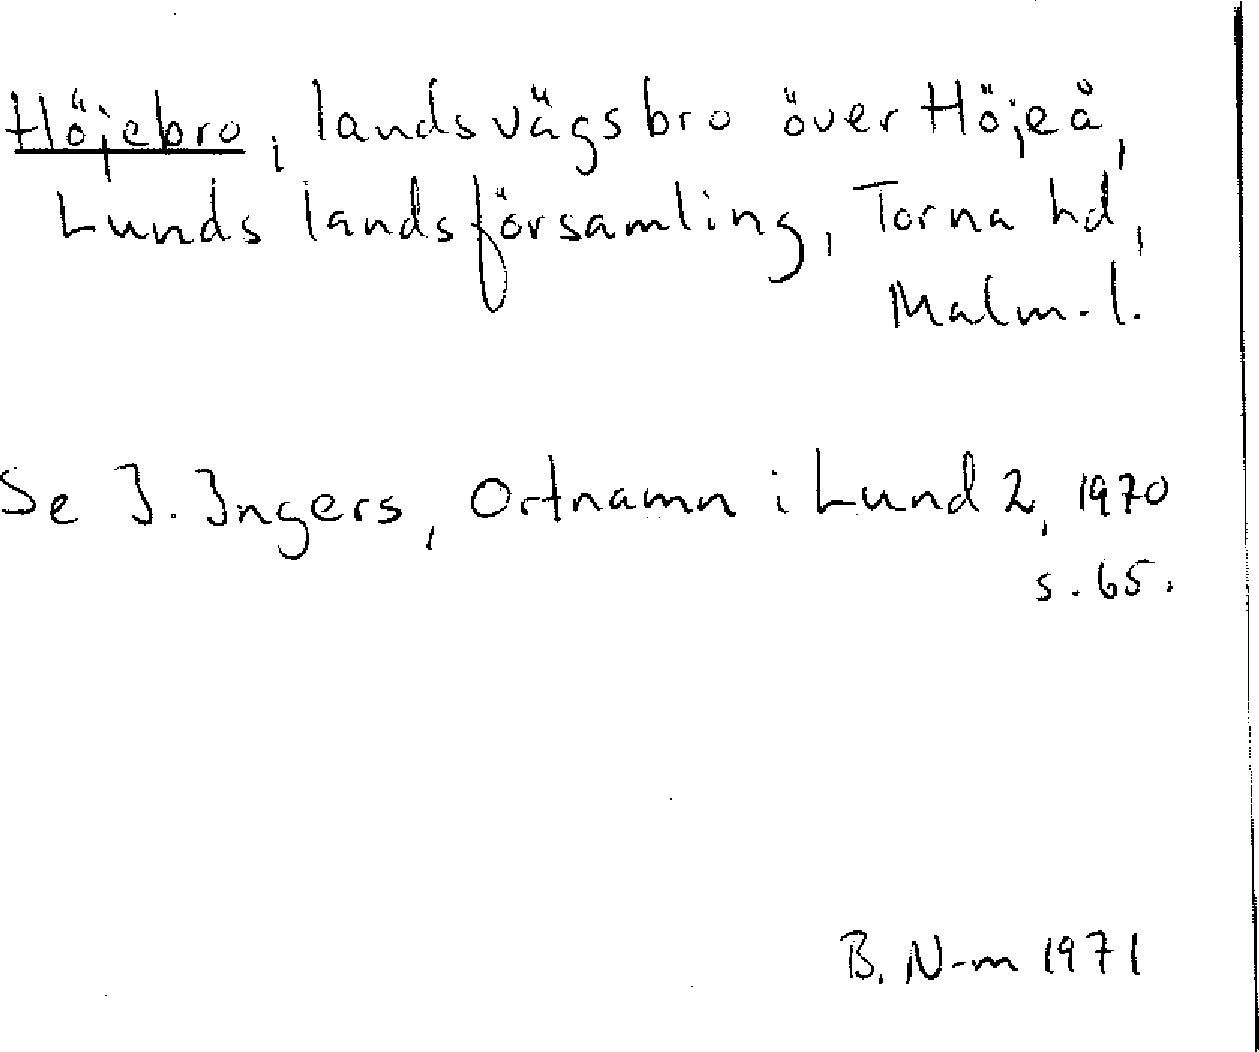 Höjebro, landsvägsbro över Höjeå,
Lunds landsförsamling, Torna hd,
Malm. l.
Se I. Ingers, Ortnamn i Lund 2, 1970
s. 65.
B. N-m 1971